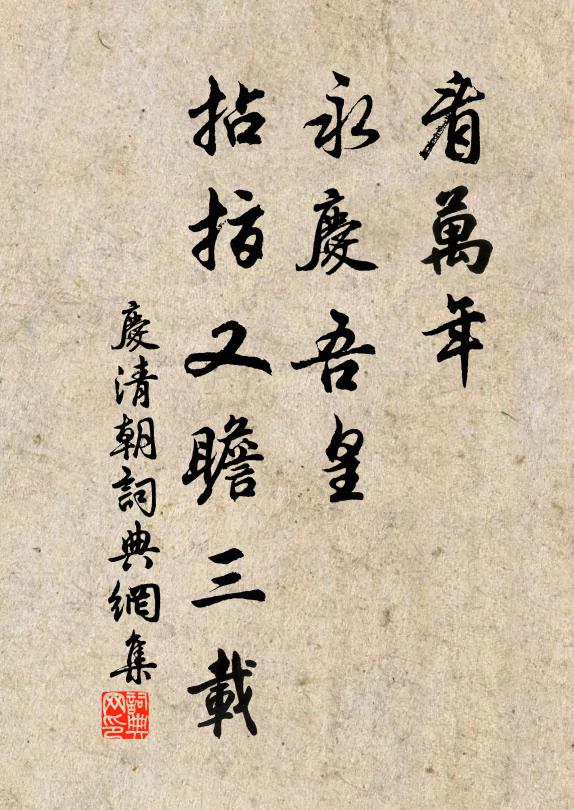 看萬年
永慶吾皇
拈指又瞻三載
慶清朝詞典網集
詞典
网印